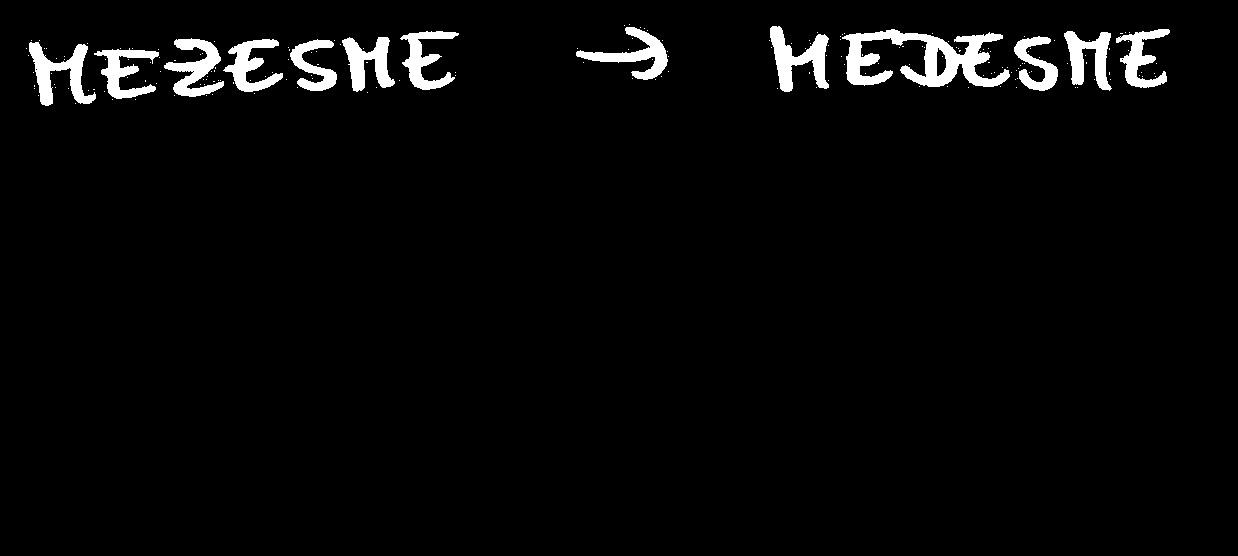 MEZESME → MEDESME